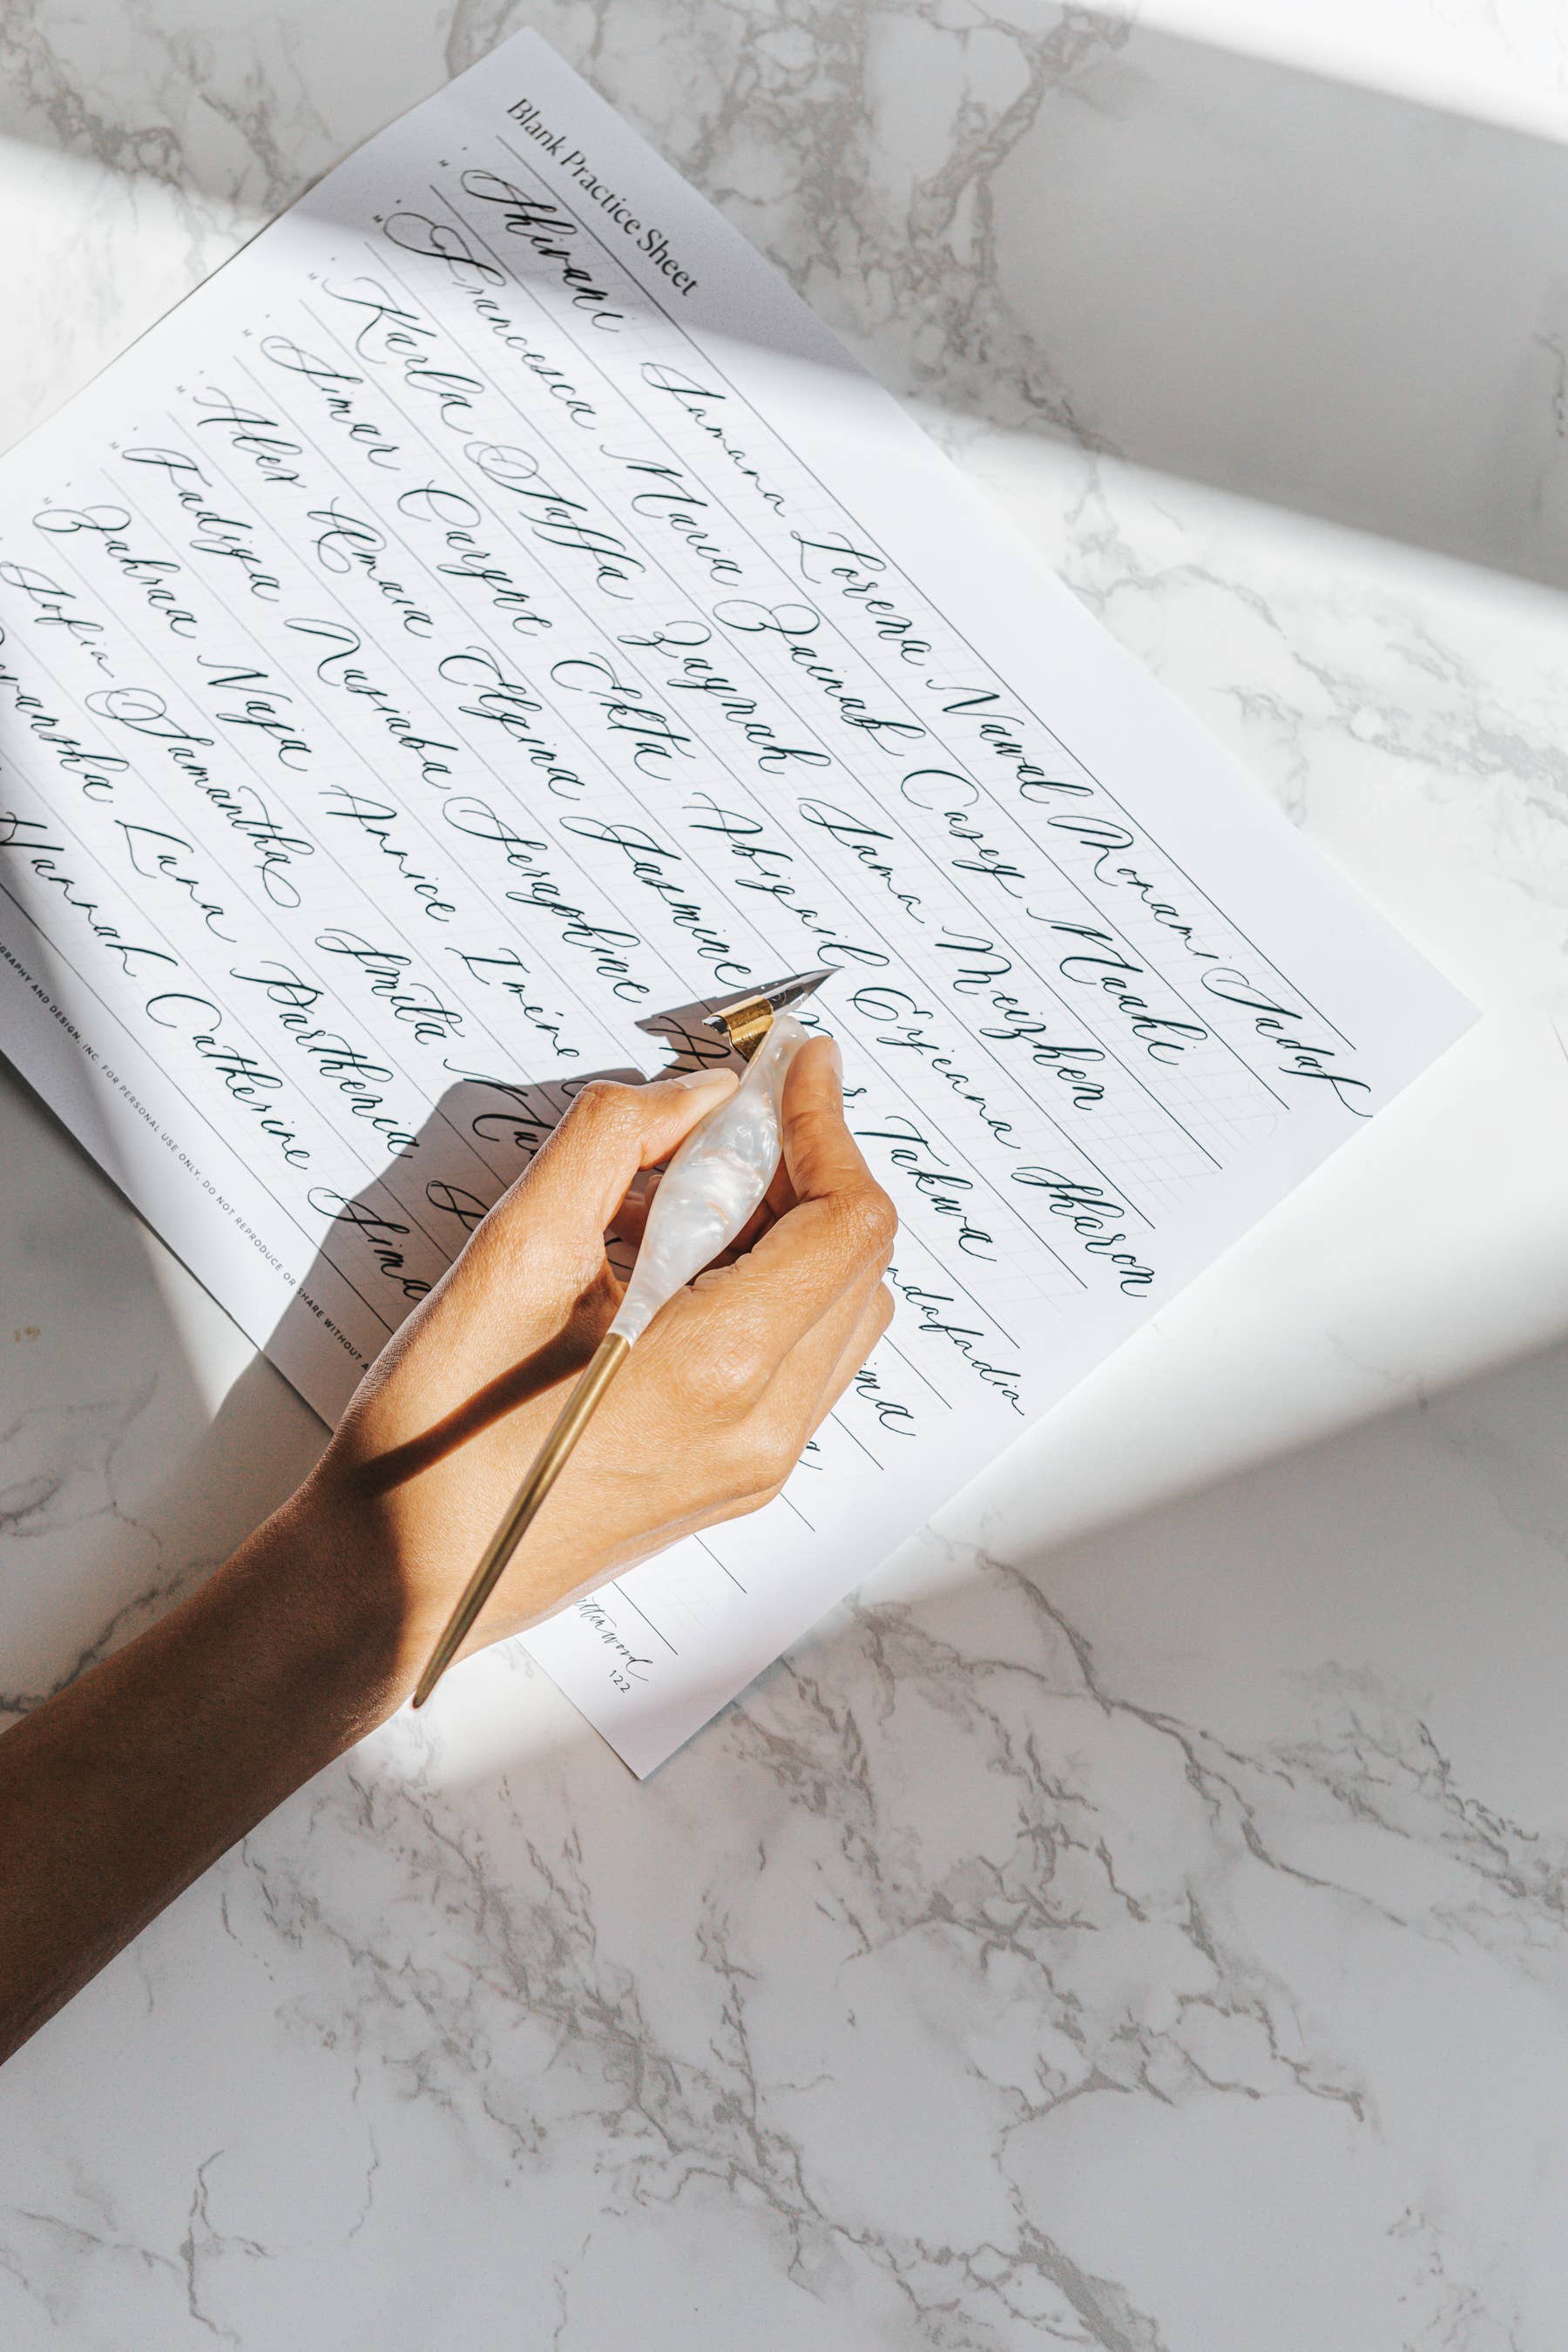 Blank Practice Sheet
Shivani Lorena Nawal Monami Sadaf
Francesca Maria Zainab Casey Maahi
Karla Saffa Zaynah Sama Meizhen
Simar Caryne Ekta Abigail Sharon
Alex Amaia Jasmine Takwa
Fadiya Nusiaba Seraphine
Zahraa Naja Annice Imène
Sofia Samantha Smita
Luna Parthenia
Hannah Catherine Sima
AND DESIGN, INC. FOR PERSONAL USE ONLY, DO NOT REPRODUCE OR SHARE WITHOUT
122